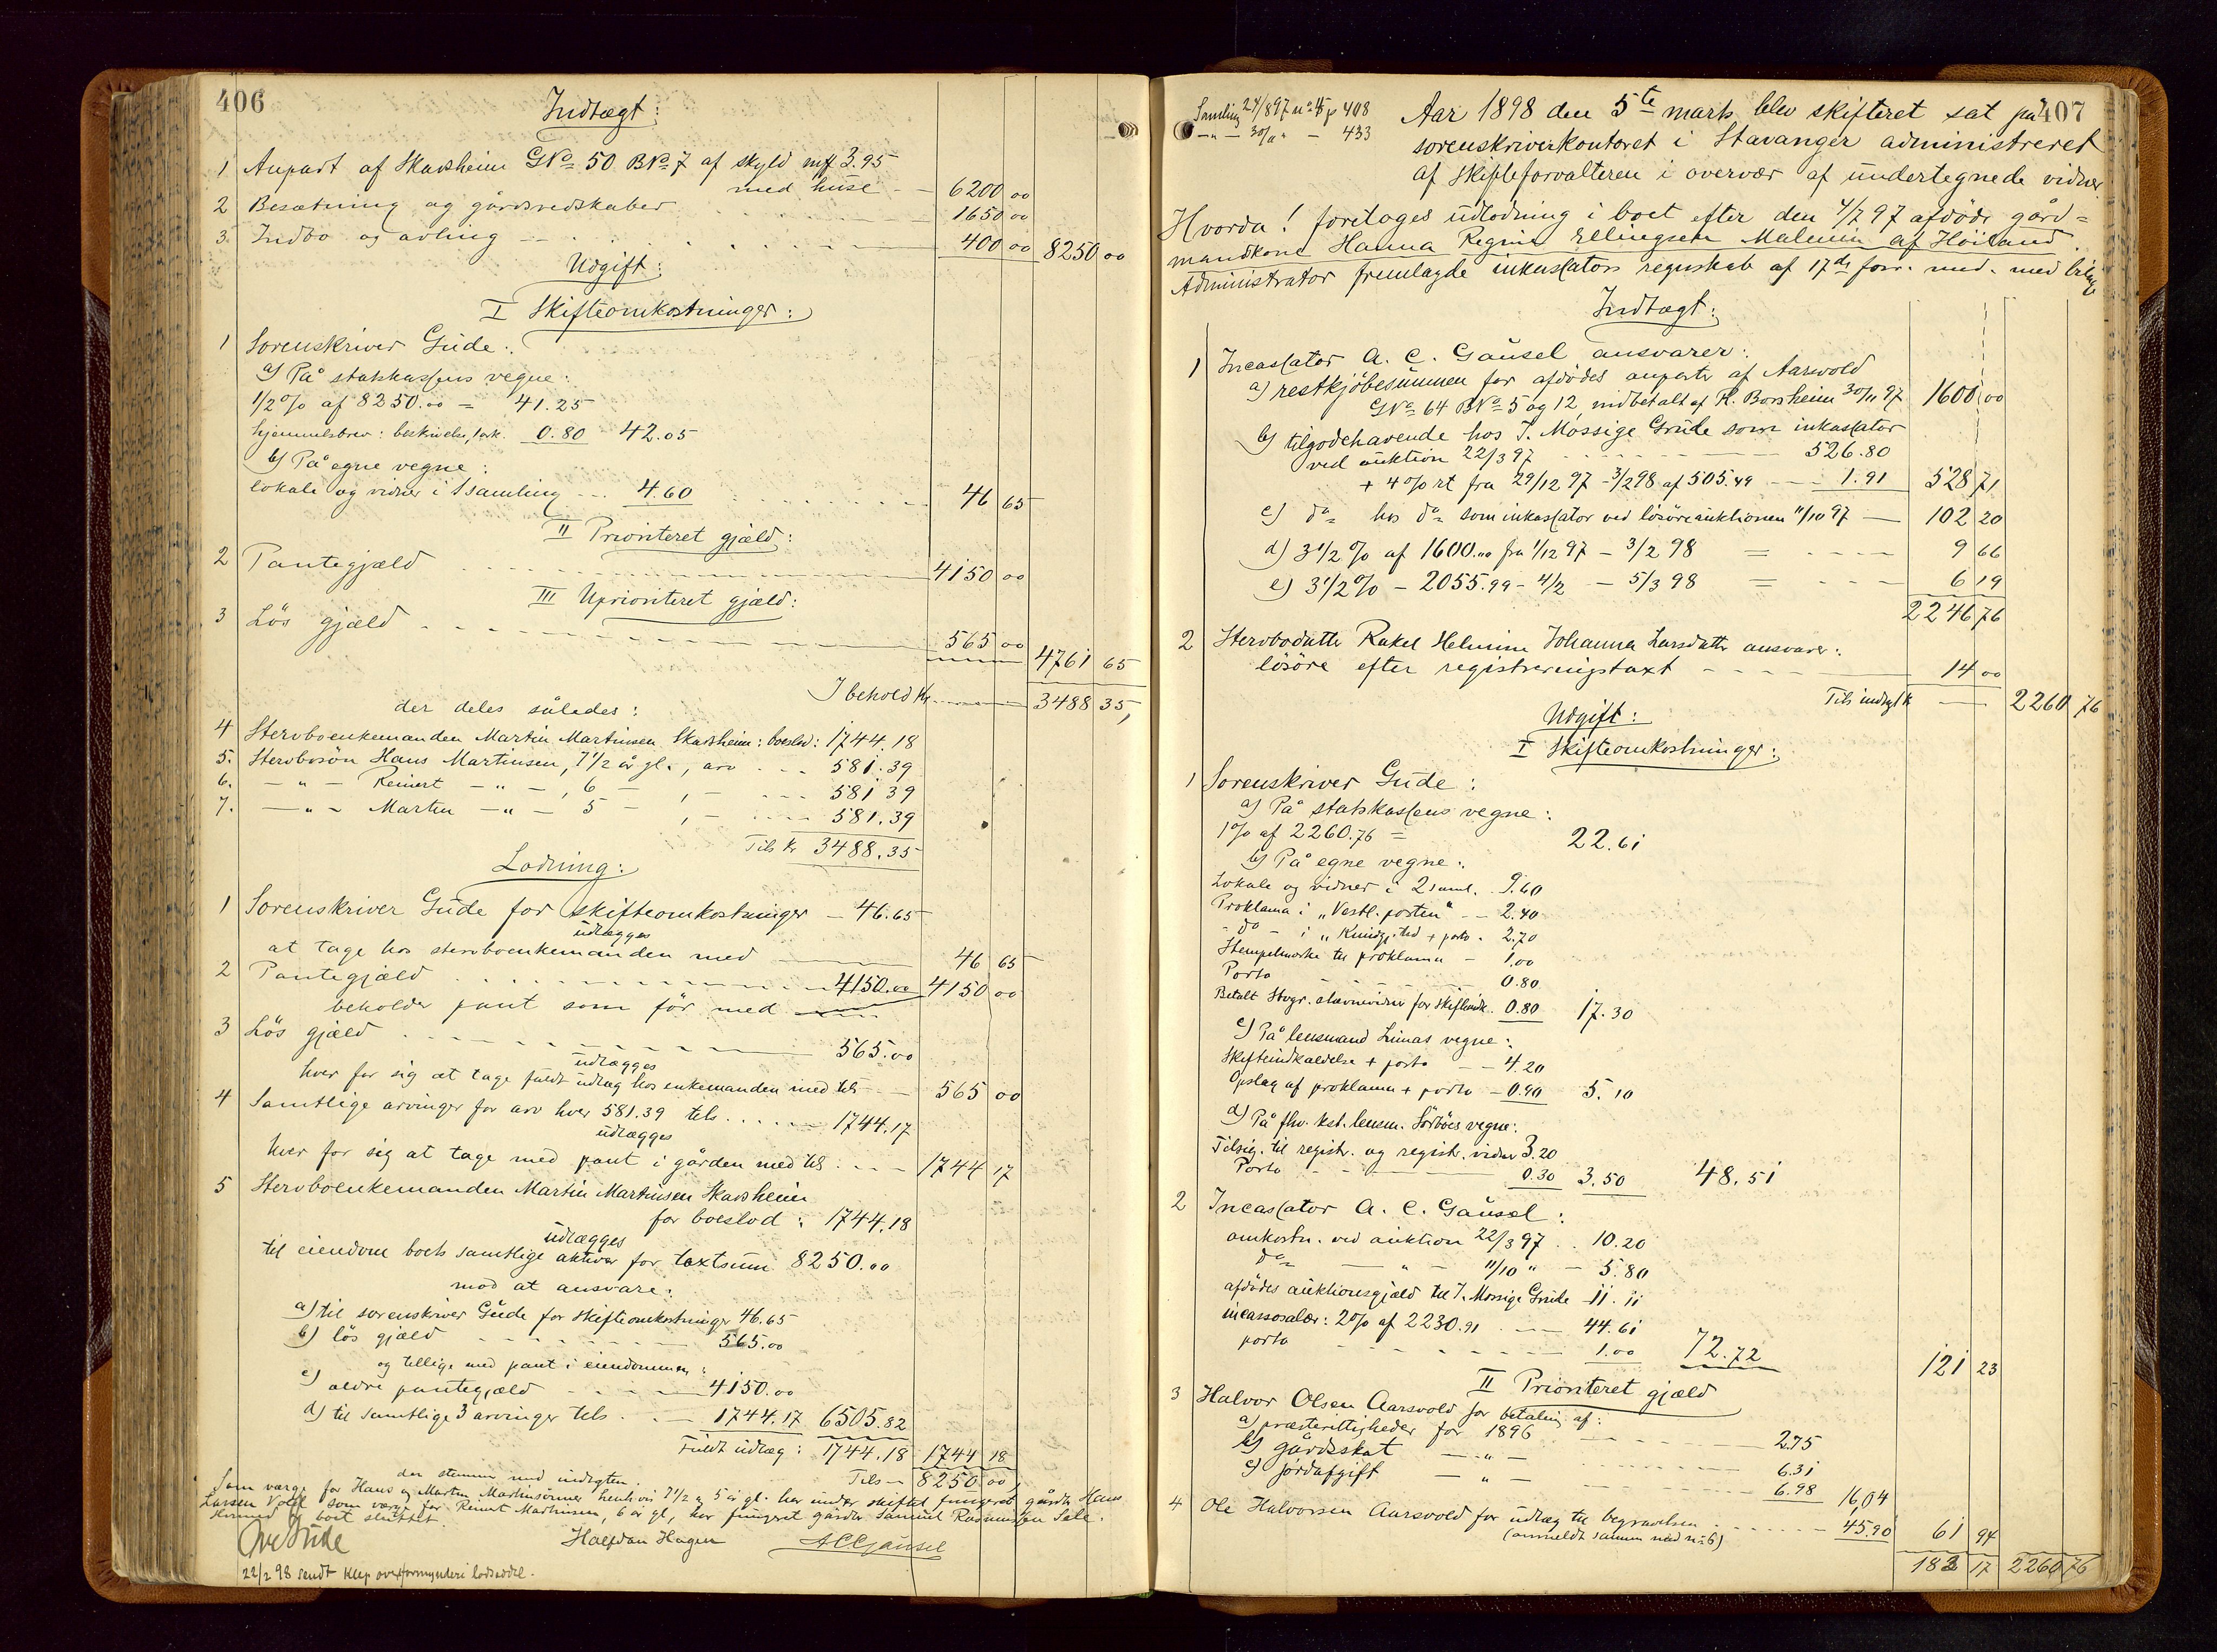 406
Indtægt:
1 Anpart af Skarsheim GNo 50 BNo 7 af skyld mk 3.95
med huse — 6200 00
2 Besætning og gårdsredskaber 1650 00
3. Indbo og avling 400 00 8250 00
Udgift:
I Skifteomkostninger:
1 Sorenskriver Gude:
a) På statskassens vegne:
1/2 % af 8250.00 = 41.25
hjemmelsbrev: beskrivelse, 1 ark. 0.80 42.05
b) På egne vegne:
lokale og vidner i 1 samling 4.60 46 65
II Prioriteret gjæld:
2 Pantegjæld 4150 00
III Uprioriteret gjæld:
3 Lös gjæld 565 00 4761 65
I behold kr 3488 35,
der deles således:
4 Stervboenkemanden Martin Martinsen Skarsheim: boeslod: 1744.18
5. Stervbosön Hans Martinsen, 7 1/2 år gl., arv 581.39
6. — " — Reinert — " — , 6 — , — 581 39
7. — " — Martin — " — 5 — , — 581.39
Tils kr 3488.35
Lodning:
1 Sorenskriver Gude for skifteomkostninger — 46.65
udlægges
at tage hos stervboenkemanden med 46 65
2 Pantegjæld 4150.00 4150 00
beholder pant som för med
3 Lös gjæld 565.00
udlægges
hver for sig at tage fuldt udlæg hos enkemanden med tils 565 00
4 Samtlige arvinger for arv hver 581.39 tils. 1744.17
udlægges
hver for sig at tage med pant i gården med tils 1744 17
5 Stervboenkemanden Martin Martinsen Skarsheim
for boeslod: 1744.18
udlægges
til eiendom boets samtlige aktiver for taxtsum 8250.00
mod at ansvare:
a) til sorenskriver Gude for skifteomkostninger 46.65
b) lös gjæld 565.00
og tillige med pant i eiendommen:
c) ældre pantegjæld 4150.00
d) til samtlige 3 arvinger tils. 1744.17 6505.82
Fuldt udlæg: 1744.18 1744 18
der stemmer med indtægten. Tils — 8250 00,
Som værge for Hans og Martin Martinsönner henh.vis 7 1/2 og 5 år gl. har under skiftet fungeret gårdbr. Hans
Larsen Voll som værge for Reinert Martinsen, 6 år gl, har fungeret gårdbr Samuel Rasmussen Sele.
Hermed er boet sluttet.
Ove Gude Halfdan Hagen A C Gausel
22/2 98 sendt Klep overformynderi lodseddel.
407
Samling 24/8 97 no 4 p 408
— " — 30/11 " — 433
Aar 1898 den 5te marts blev skifteret sat på
sorenskriverkontoret i Stavanger administreret
af skifteforvalteren i overvær af undertegnede vidner
Hvorda! foretoges udlodning i boet efter den 4/7 97 afdöde gård=
mandskone Hanna Regine Ellingsen Malmin af Höiland.
Administrator fremlagde inkassators regnskab af 17de forr. md. med bilag
Indtægt:
1 Incassator A. C. Gausel ansvarer:
a) restkjöbesummen for afdödes anparter af Aarsvold
GNo 64 BNo 5 og 12, indbetalt af H. Borsheim 30/11 97 1600 00
b) tilgodehavende hos T. Mossige Grude som inkassator
ved auktion 22/3 97 526.80
+ 4% rt fra 29/12 97 - 3/2 98 af 505.49 1.91 528 71
c) do hos do som inkassator ved lösöreauktionen 11/10 97 — 102 20
d) 3 1/2 % af 1600.00 fra 1/12 97 - 3/2 98 = 9 66
e) 3 1/2 % - 2055.99 - 4/2 - 5/3 98 = 6 19
2246 76
2 Stervbodatter Rakel Helmine Johanna Larsdatter ansvarer:
lösöre efter registreringstaxt 14 00
Tils indtægt k — 2260 76
Udgift:
I Skifteomkostninger:
1 Sorenskriver Gude:
a) På statskassens vegne:
1% af 2260.76 = 22.61
b) På egne vegne:
Lokale og vidner i 2 saml. 9.60
Proklama i "Vestl. posten" — 2.40
do — i "Kundgj. tid + porto 2.70
Stempelmærke til proklama — 1.00
Porto 0.80
Betalt Stvgr. stævnevidner for skifteindk. 0.80 17.30
c) På lensmand Limas vegne:
Skifteindkaldelse + porto 4.20
Opslag af proklama + porto 0.90 5.10
d) På fhv. kst. lensm. Sörböes vegne:
Tilsig. til registr. og registr. vidner 3.20
Porto 0.30 3.50 48.51
2 Incassator A. C. Gausel:
omkostn. ved auktion 22/3 97 10.20
do — " — 11/10 " — 5.80
afdödes auktionsgjæld til T. Mossige Grude 11.11
incassosalær: 2% af 2230.91 44.61
porto 1.00 72.72 121 23
II Prioriteret gjæld
3 Halvor Olsen Aarsvold for betaling af:
a) præsterettigheder for 1896 2.75
b) gårdsskat — " — 6.31
c) jordafgift — " — 6.98 16,04
4 Ole Halvorsen Aarsvold for udlæg til begravelsen 45.90 61 94
(anmeldt sammen med no 6)
183 17 2260 76